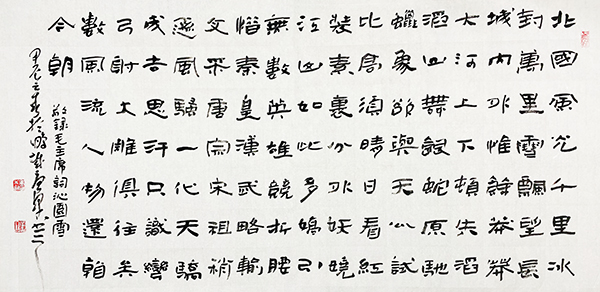 北國風光千里冰
封萬里雪飄望長
城內外惟餘莽莽
大河上下頓失滔
滔山舞銀蛇原馳
蠟象欲與天公試
比高須晴日看紅
裝素裹分外妖嬈
江山如此多嬌引
無數英雄競折腰
惜秦皇漢武略輸
文采唐宗宋祖稍
遜風騷一代天驕
成吉思汗只識彎
弓射大雕俱往矣
數風流人物還看
今朝
敬錄毛主席詞沁園雪